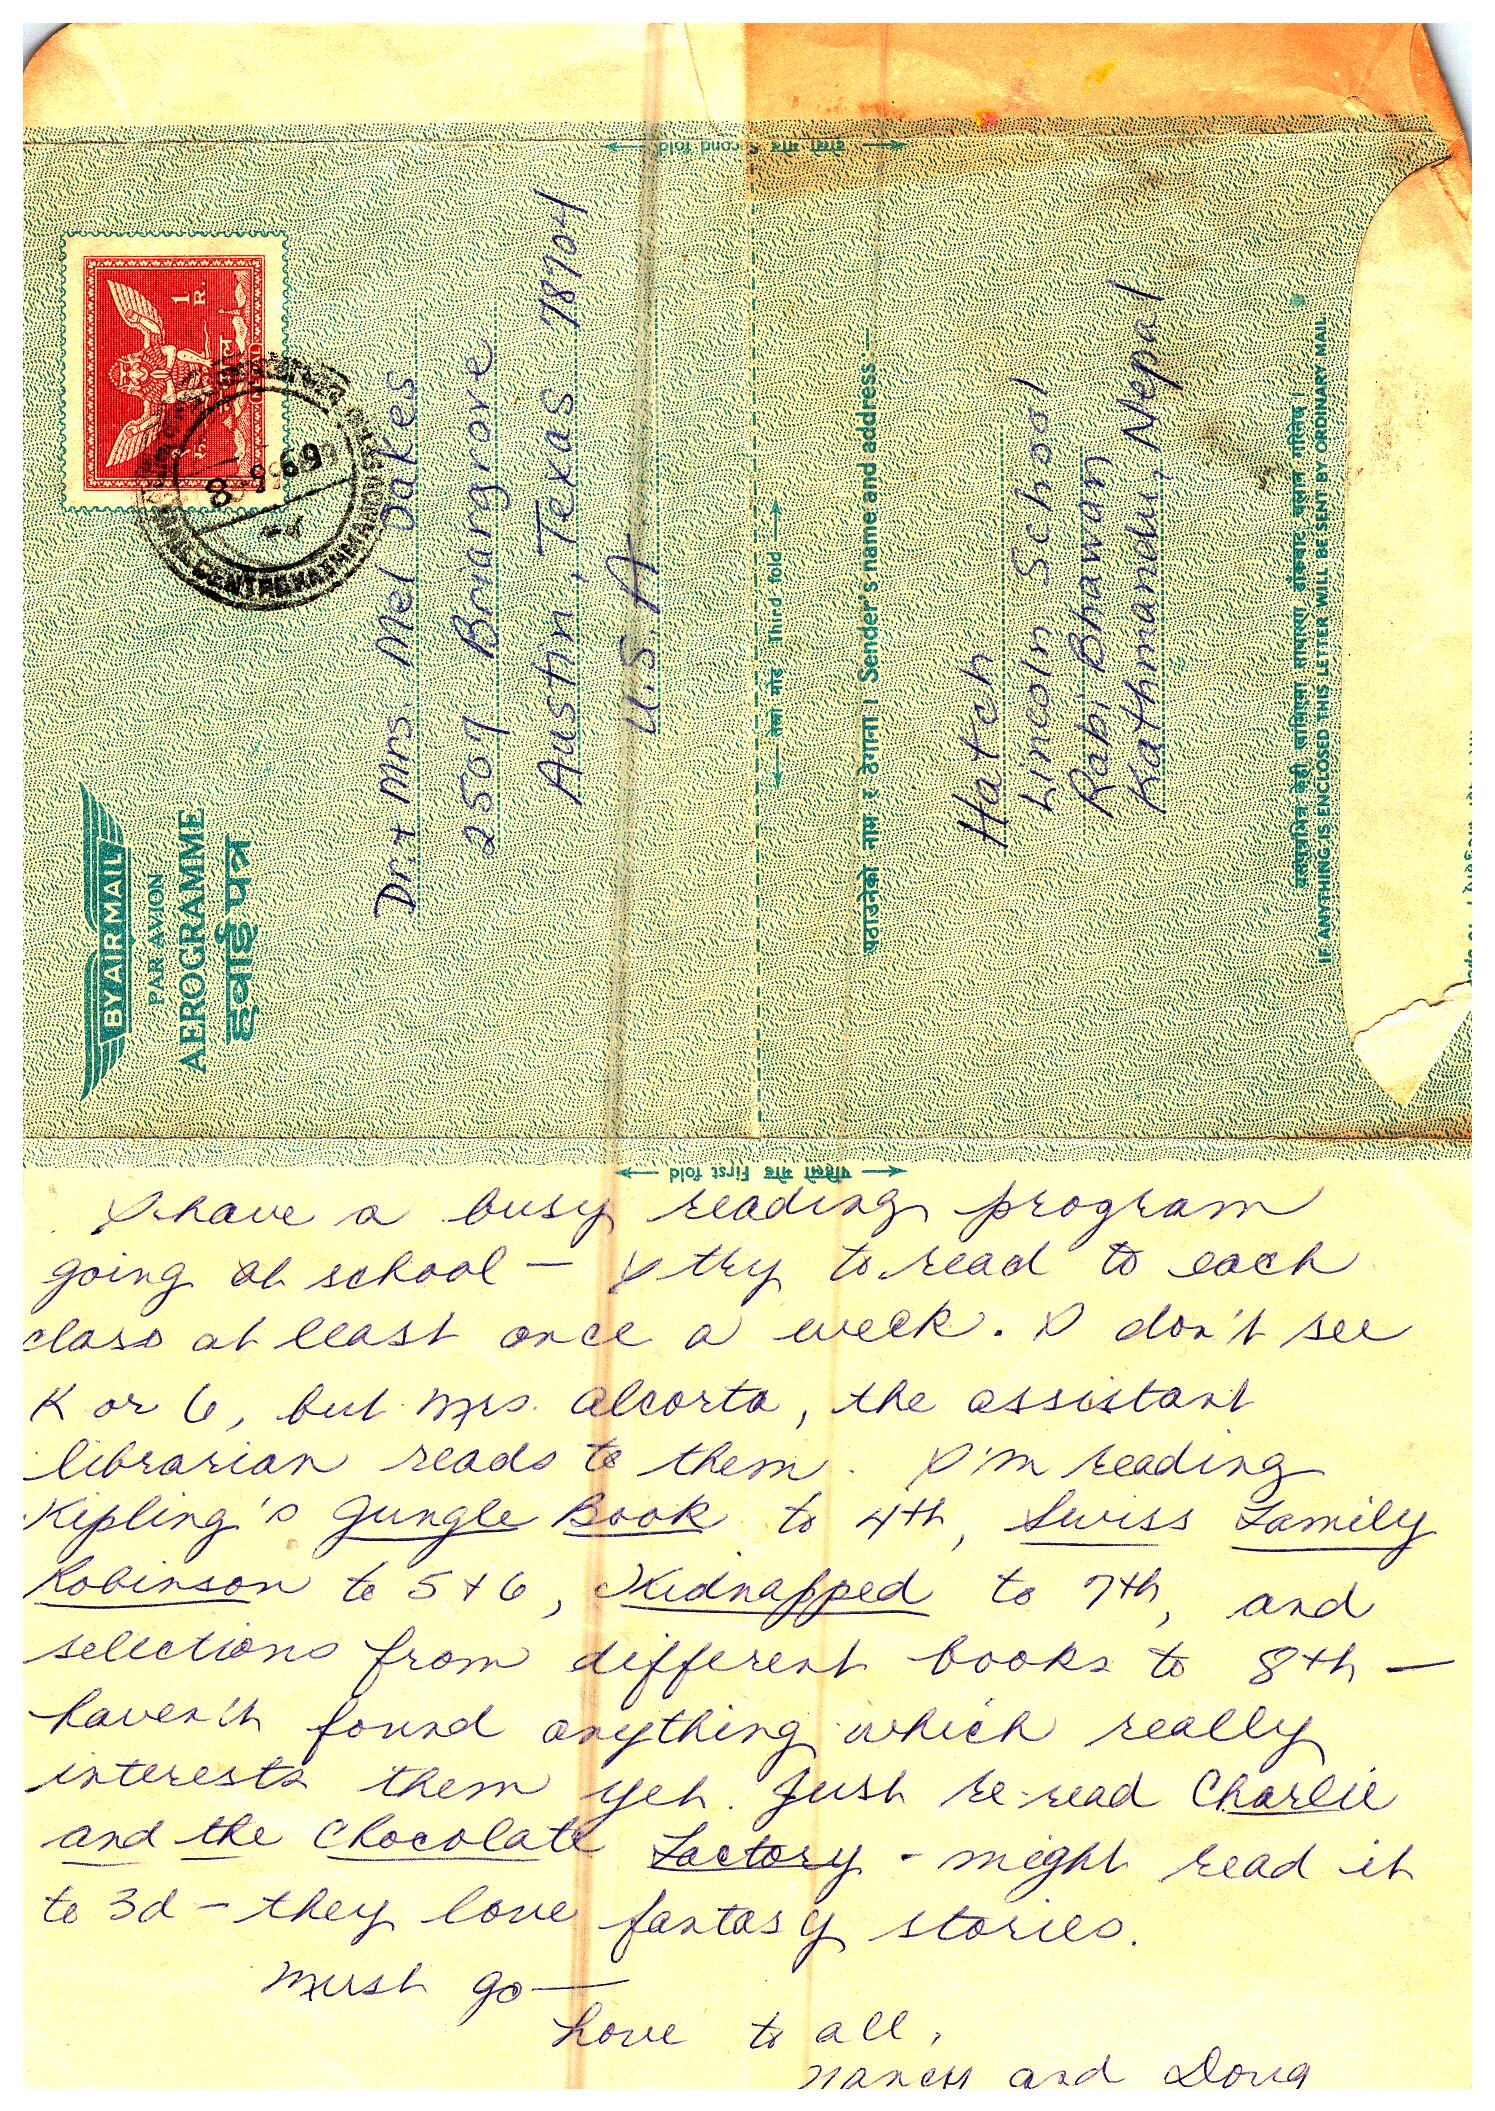 दोस्रो मोड Second fold
1 R.
नेपाल
8-9-69
KATHMANDU
BY AIR MAIL
PAR AVION
AEROGRAMME
हवाई पत्र
Dr. + Mrs. Mel Oakes
2507 Briargrove
Austin, Texas 78704
U.S.A.
तेस्रो मोड Third fold
पठाउनेको नाम र ठेगाना । Sender's name and address:—
Hatch
Lincoln School
Rabi Bhawan
Kathmandu, Nepal
IF ANYTHING IS ENCLOSED THIS LETTER WILL BE SENT BY ORDINARY MAIL
पहिलो मोड First fold
I have a busy reading program
going at school — I try to read to each
class at least once a week. I don't see
K or 6, but Mrs. Alcorta, the assistant
librarian reads to them. I'm reading
Kipling's Jungle Book to 4th, Swiss Family
Robinson to 5 + 6, Kidnapped to 7th, and
selections from different books to 8th —
haven't found anything which really
interests them yet. Just re-read Charlie
and the Chocolate Factory - might read it
to 3d — they love fantasy stories.
Must go —
Love to all,
Nancy and Doug